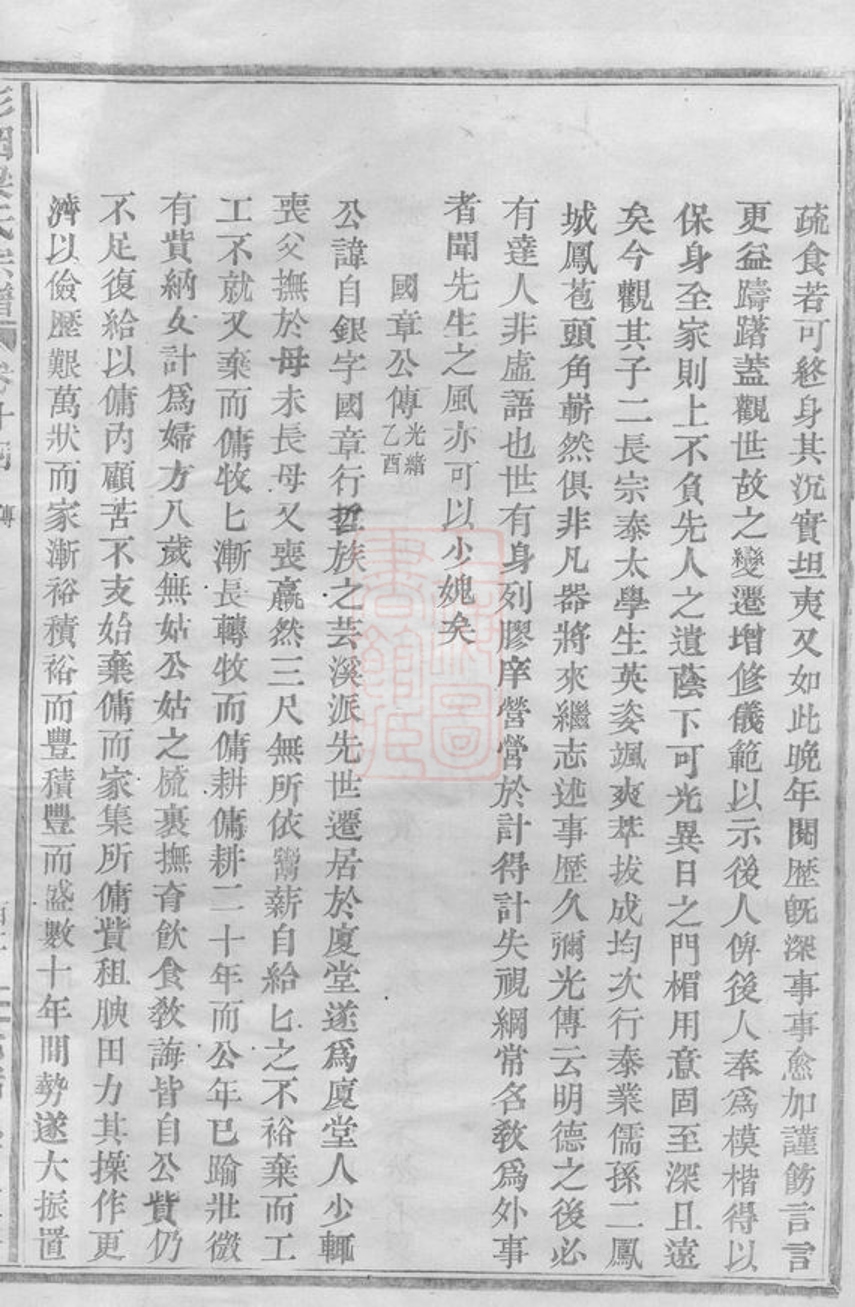 疏食若可終身其沉實坦夷又如此晚年閱歷旣深事事愈加謹飭言言
更益躊躇蓋觀世故之變遷增修儀範以示後人俾後人奉爲模楷得以
保身至家則上不負先人之遺蔭下可光異日之門楣用意固至深且遠
矣今觀其子二長宗泰太學生英姿颯爽萃拔成均次行泰業儒孫二鳳
城鳳苞頭角嶄然俱非凡器將來繼志述事歷久彌光傳云明德之後必
有達人非虛語也世有身列膠庠營營於計得計失視綱常名教爲外事
者聞先生之風亦可以少媿矣
國章公傳光緒乙酉
公諱自銀字國章行哲族之芸溪派先世遷居於廈堂遂爲廈堂人少輒
喪父撫於母未長母又喪羸然三尺無所依鬻薪自給匕之不裕棄而工
工不就又棄而傭牧匕漸長轉牧而傭耕傭耕二十年而公年已踰壯微
有貲納女計爲婦方八歲無姑公姑之梳裹撫育飲食教誨皆自公貲仍
不足復給以傭內顧苦不支始棄傭而家集所傭貲租腴田力其操作更
濟以儉歷艱萬狀而家漸裕積裕而豐積豐而盛數十年間勢遂大振置
氏宗譜
傳